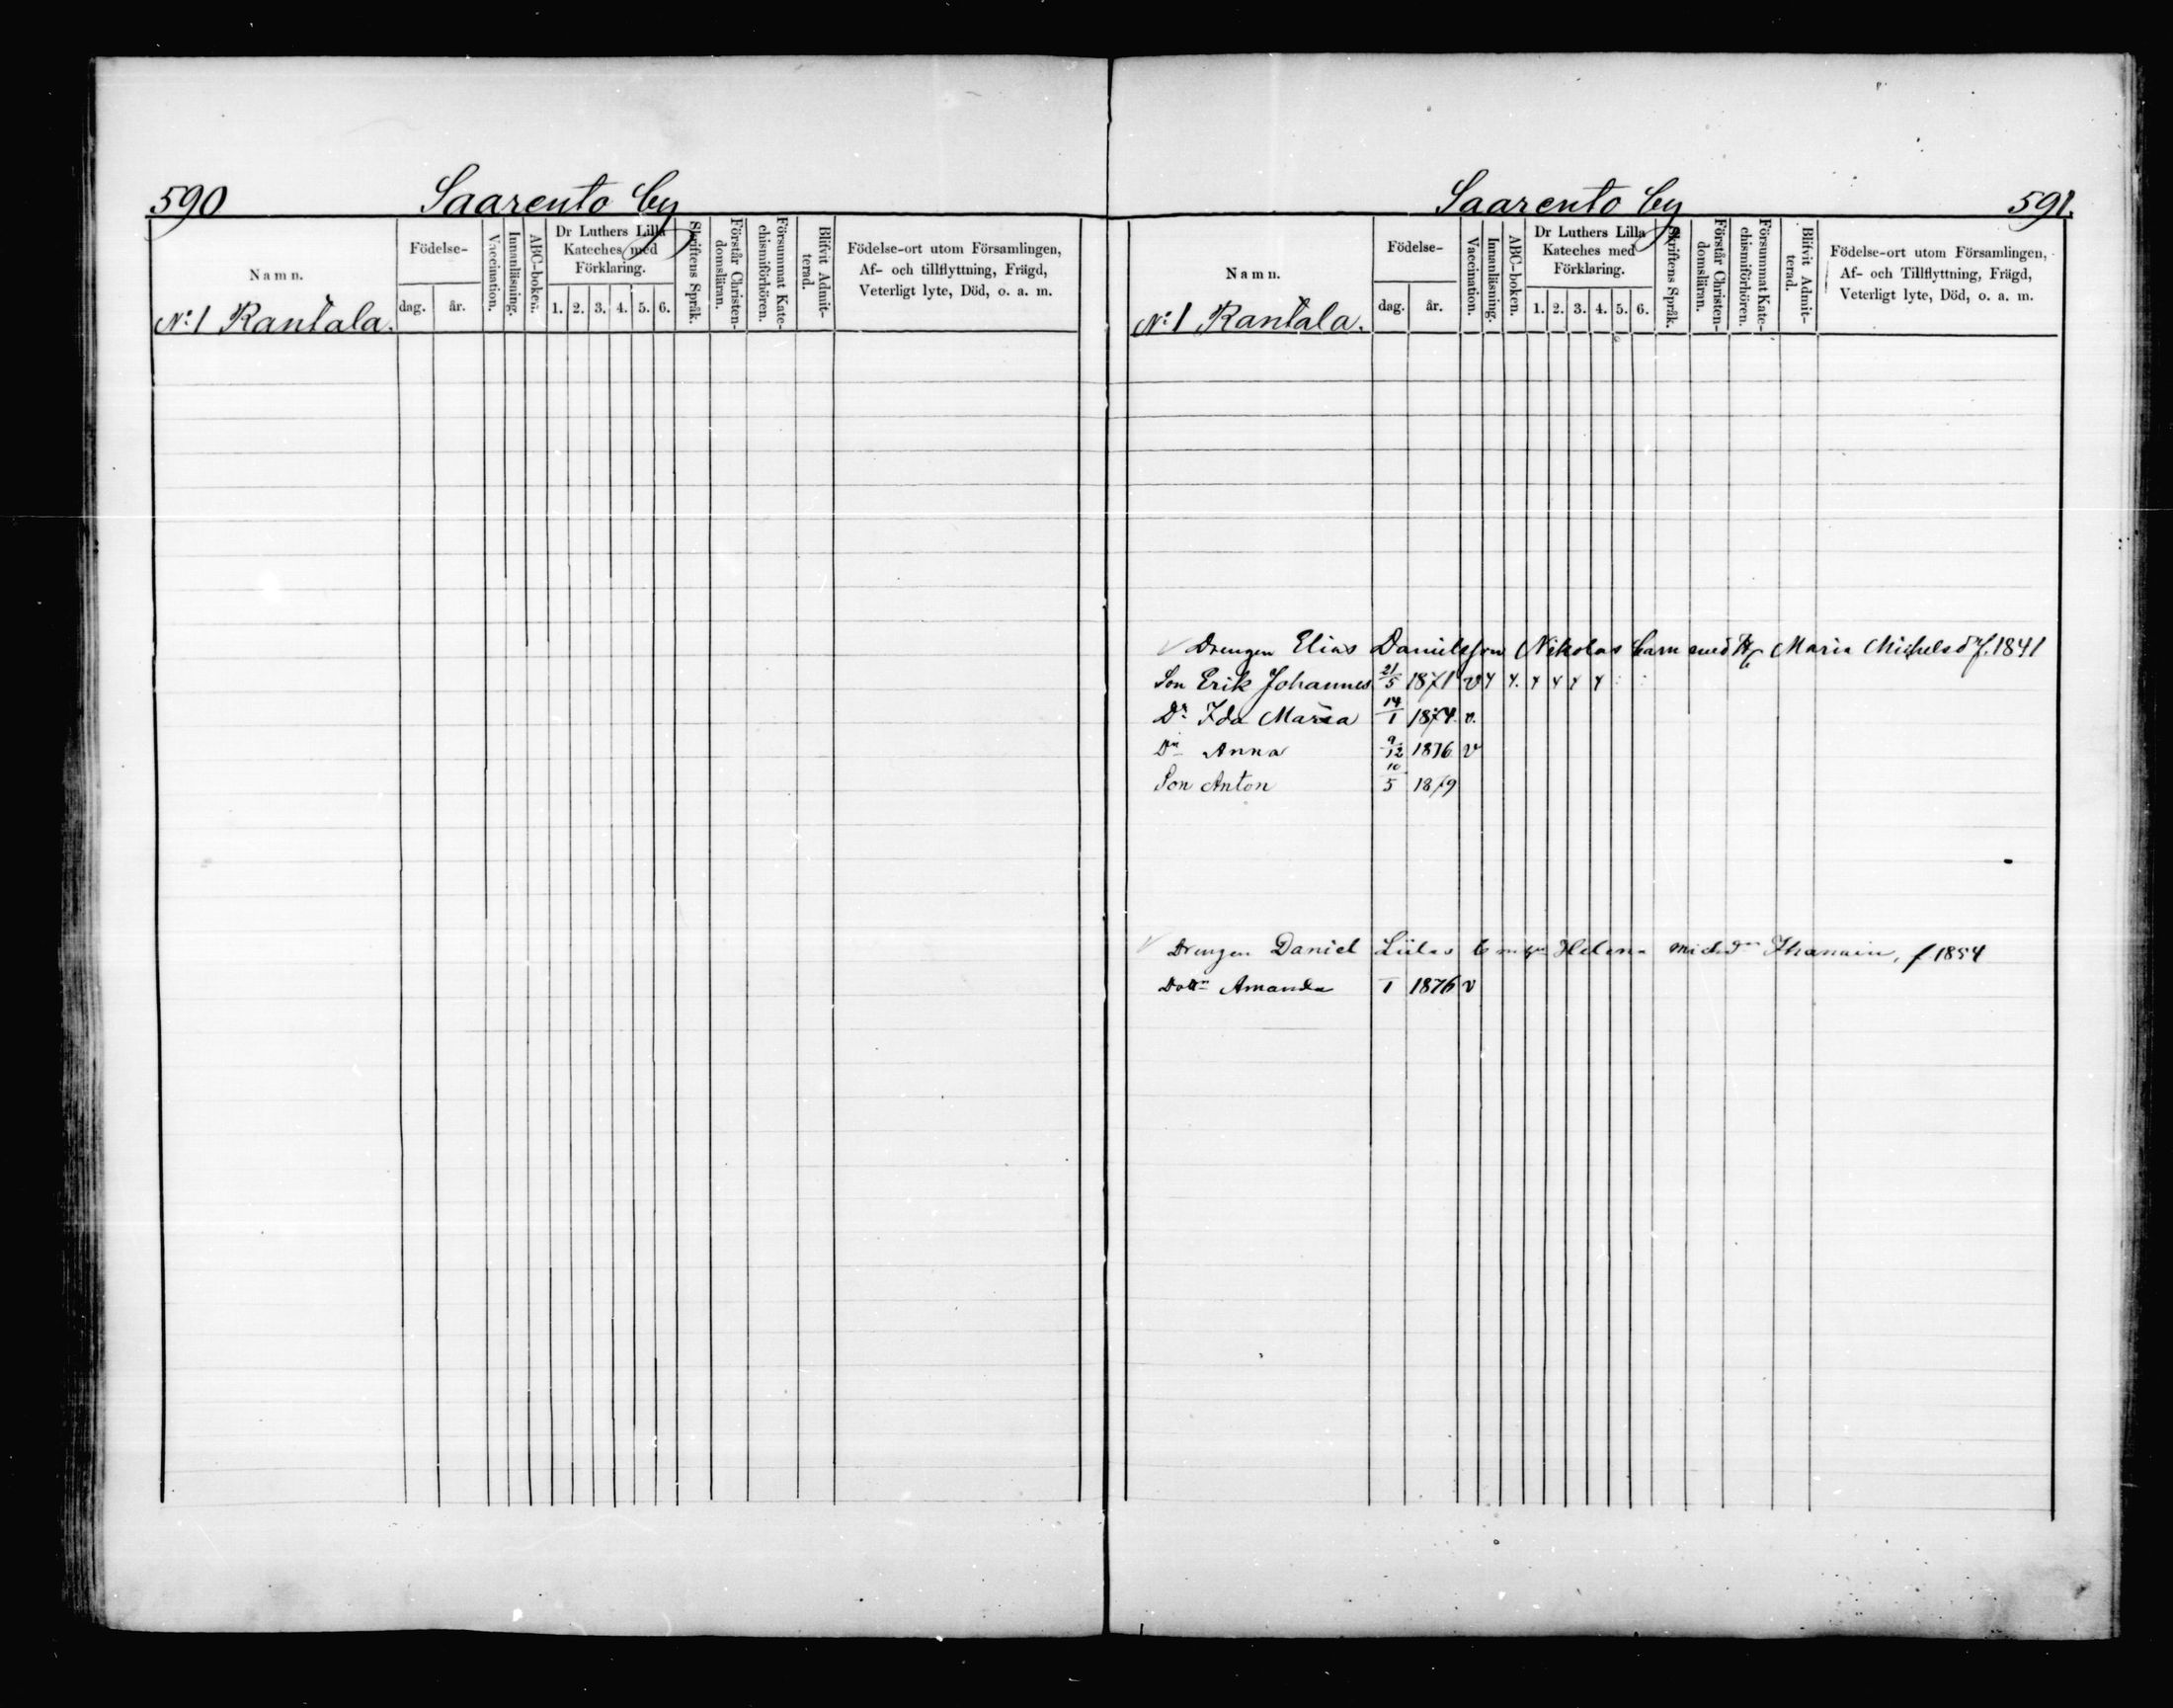 590 Saarento by
Namn.
Födelse-
dag. år.
Vaccination.
Innanläsning.
ABC-boken.
Dr Luthers Lilla Kateches med Förklaring.
1. 2. 3. 4. 5. 6.
Skriftens Språk.
Förstår Christen-domsläran.
Försummat Kate-chismiförhören.
Blifvit Admit-terad.
Födelse-ort utom Församlingen,
Af- och tillflyttning, Frägd,
Veterligt lyte, Död, o. a. m.
No 1 Rantala.
Saarento by 591.
Namn.
Födelse-
dag. år.
Vaccination.
Innanläsning.
ABC-boken.
Dr Luthers Lilla
Kateches med
Förklaring.
1. 2. 3. 4. 5. 6.
Skriftens Språk.
Förstår Christen-domsläran.
Försummat Kate-chismiförhören.
Blifvit Admit-terad.
Födelse-ort utom Församlingen,
Af- och Tillflyttning, Frägd,
Veterligt lyte, Död, o. a. m.
No 1 Rantala.
Drengen Elias Danielsson Nikolas barn med Maria Michelsdr f. 1841
Son Erik Johannes 21/5 1871 v
Dr Ida Maria 14/1 1874 v.
Dr Anna 9/12 1876 v
Son Anton 10/5 1879
Drengen Daniel Helena Michdr f 1854
Dottr Amanda 1 1876 v